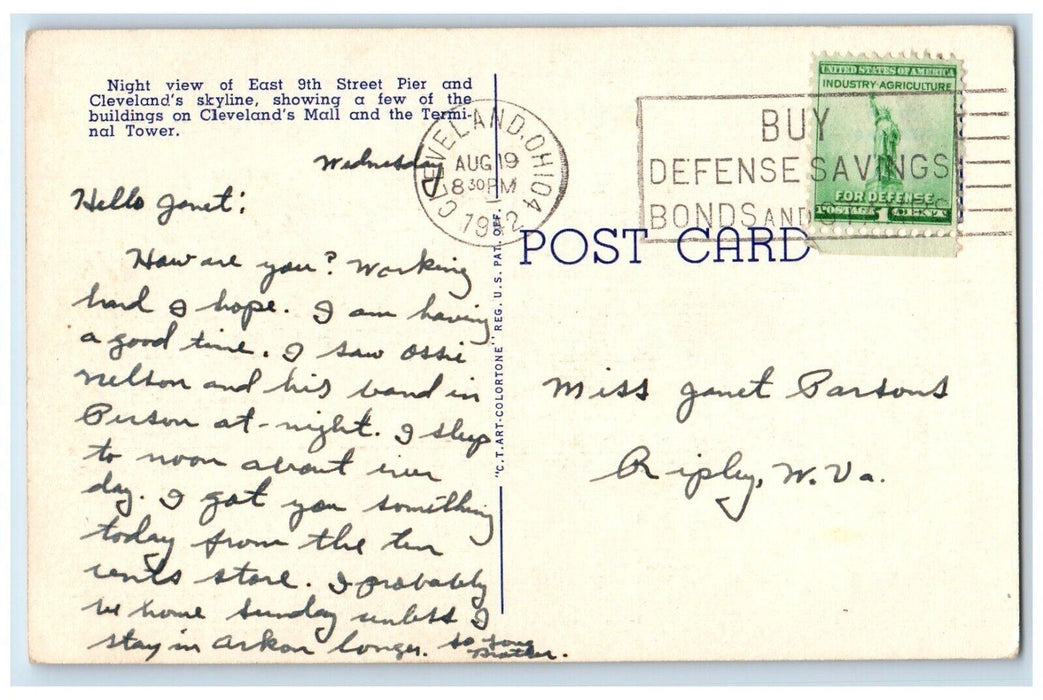 Night view of East 9th Street Pier and
Cleveland's skyline, showing a few of the
buildings on Cleveland's Mall and the Termi-
nal Tower.
Wednesday
Hello Janet:
How are you? Working
hard I hope. I am having
a good time. I saw Ossie
Nelson and his band in
Person at-night. I sleep
to noon about ever
day. I got you something
today from the ten
cents store. I probably
be home Sunday unless I
stay in Arkon longer. So long
Brother.
"C.T. ART-COLORTONE" REG. U.S. PAT. OFF.
CLEVELAND, OHIO 4
AUG 19
8 30 PM
1942
BUY
DEFENSE SAVINGS
BONDS AND S
UNITED STATES OF AMERICA
INDUSTRY·AGRICULTURE
FOR DEFENSE
POSTAGE 1 CENTS
POST CARD
Miss Janet Parsons
Ripley, W. Va.